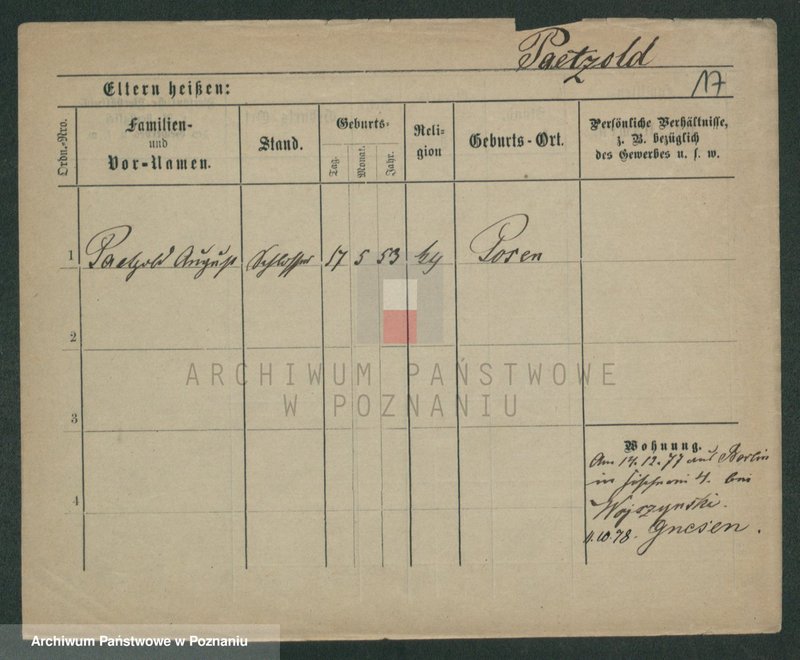 Paetzold
17
Eltern heißen:
Ordn.-Nro.
Familien-
und
Vor-Namen.
Stand.
Geburts-
Tag.
Monat.
Jahr.
Reli-
gion
Geburts-Ort.
Persönliche Verhältnisse,
z. B. bezüglich
des Gewerbes u. s. w.
1 Paetzold August Schlosser 17 5 53 Posen
2
ARCHIWUM PAŃSTWOWE
W POZNANIU
3
4
Wohnung.
Am 14.12.77 aus Berlin
in 4. bei
Wojszynski.
10 78. Gnesen.
Archiwum Państwowe w Poznaniu